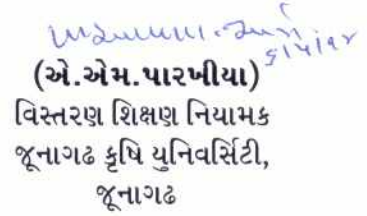 (એ.એમ.પારખીયા)
વિસ્તરણ શિક્ષણ નિયામક
જૂનાગઢ કૃષિ યુનિવર્સિટી,
જૂનાગઢ